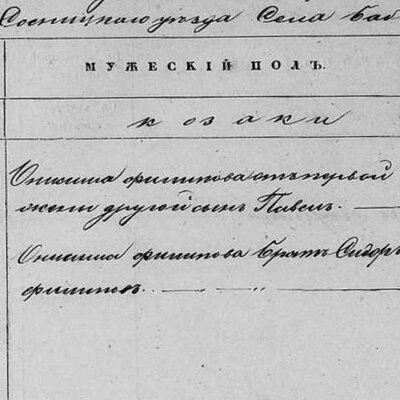 Сосницкаго уезда Села Баб
МУЖЕСКІЙ ПОЛЪ.
козаки
Онисима филипова отъ первой
жены другой сынъ Павелъ.
Онисима филипова братъ Сидоръ
филиповъ.